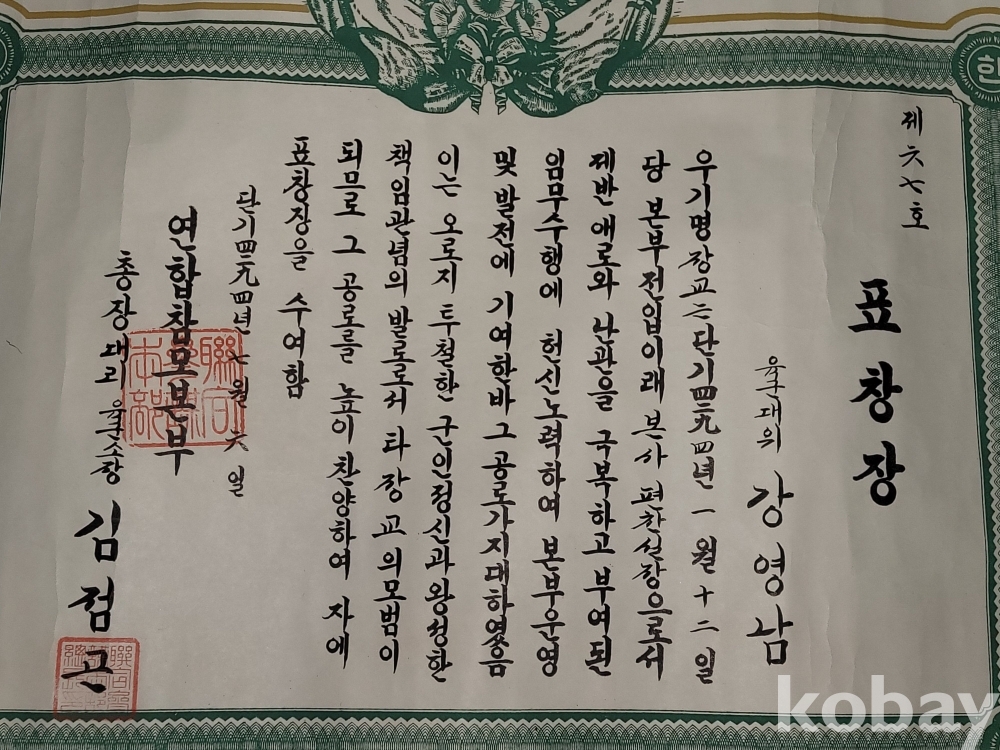 제六七호
표창장
육군대위 강영남
우기명장교는 단기四二九四년一월十二일
당 본부전입이래 본사 편찬실장으로서
제반 애로와 난관을 극복하고 부여된
임무수행에 헌신노력하여 본부운영
및 발전에 기여한바 그 공로가지대하였음
이는 오로지 투철한 군인정신과 왕성한
책임관념의 발로로서 타장교의모범이
되므로 그 공로를 높이 찬양하여 자에
표창장을 수여함
단기四二九四년七월六일
연합참모본부
총장대리 육군소장 김점곤
한
kobay